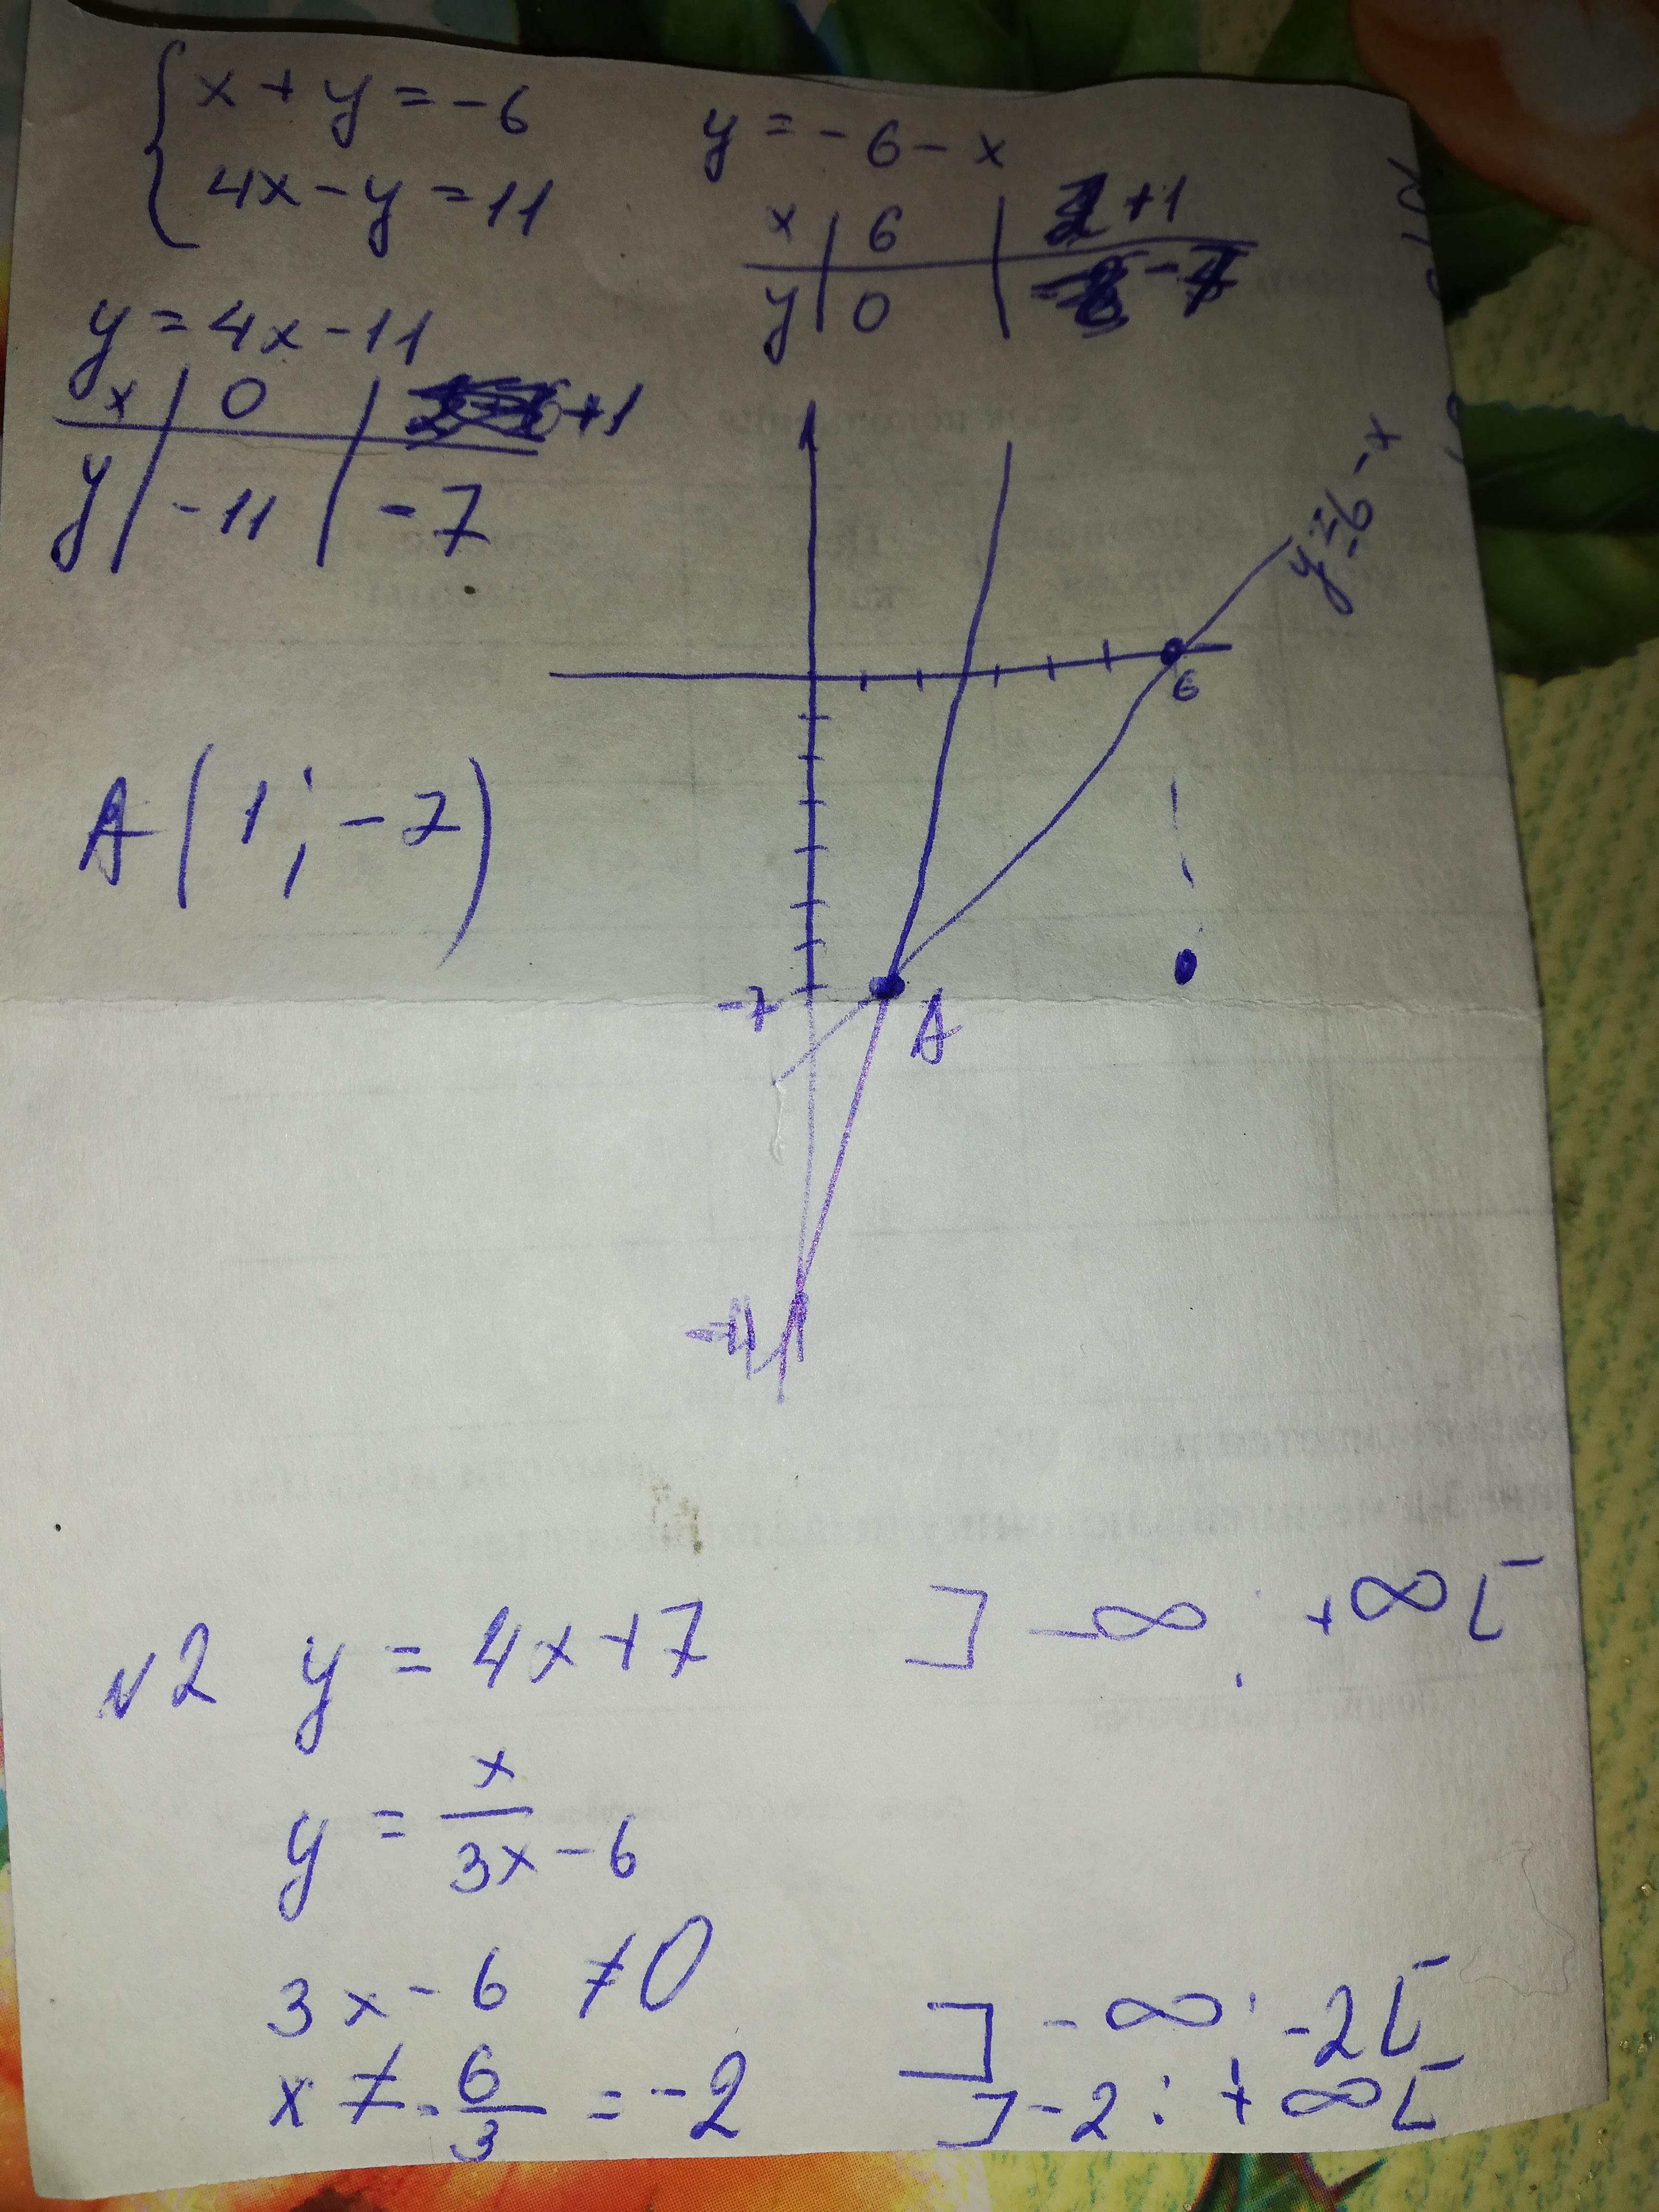 { x + y = -6
4x - y = 11
y = -6 - x
x | 6 | +1
y | 0 | -7
y = 4x - 11
x | 0 | +1
y | -11 | -7
y = -6 - x
6
A(1; -7)
-7
A
-11
N2 y = 4x + 7 ]-∞; +∞[
y = x/(3x - 6)
3x - 6 ≠ 0 ]-∞; -2[
x ≠ -6/3 = -2 ]-2; +∞[